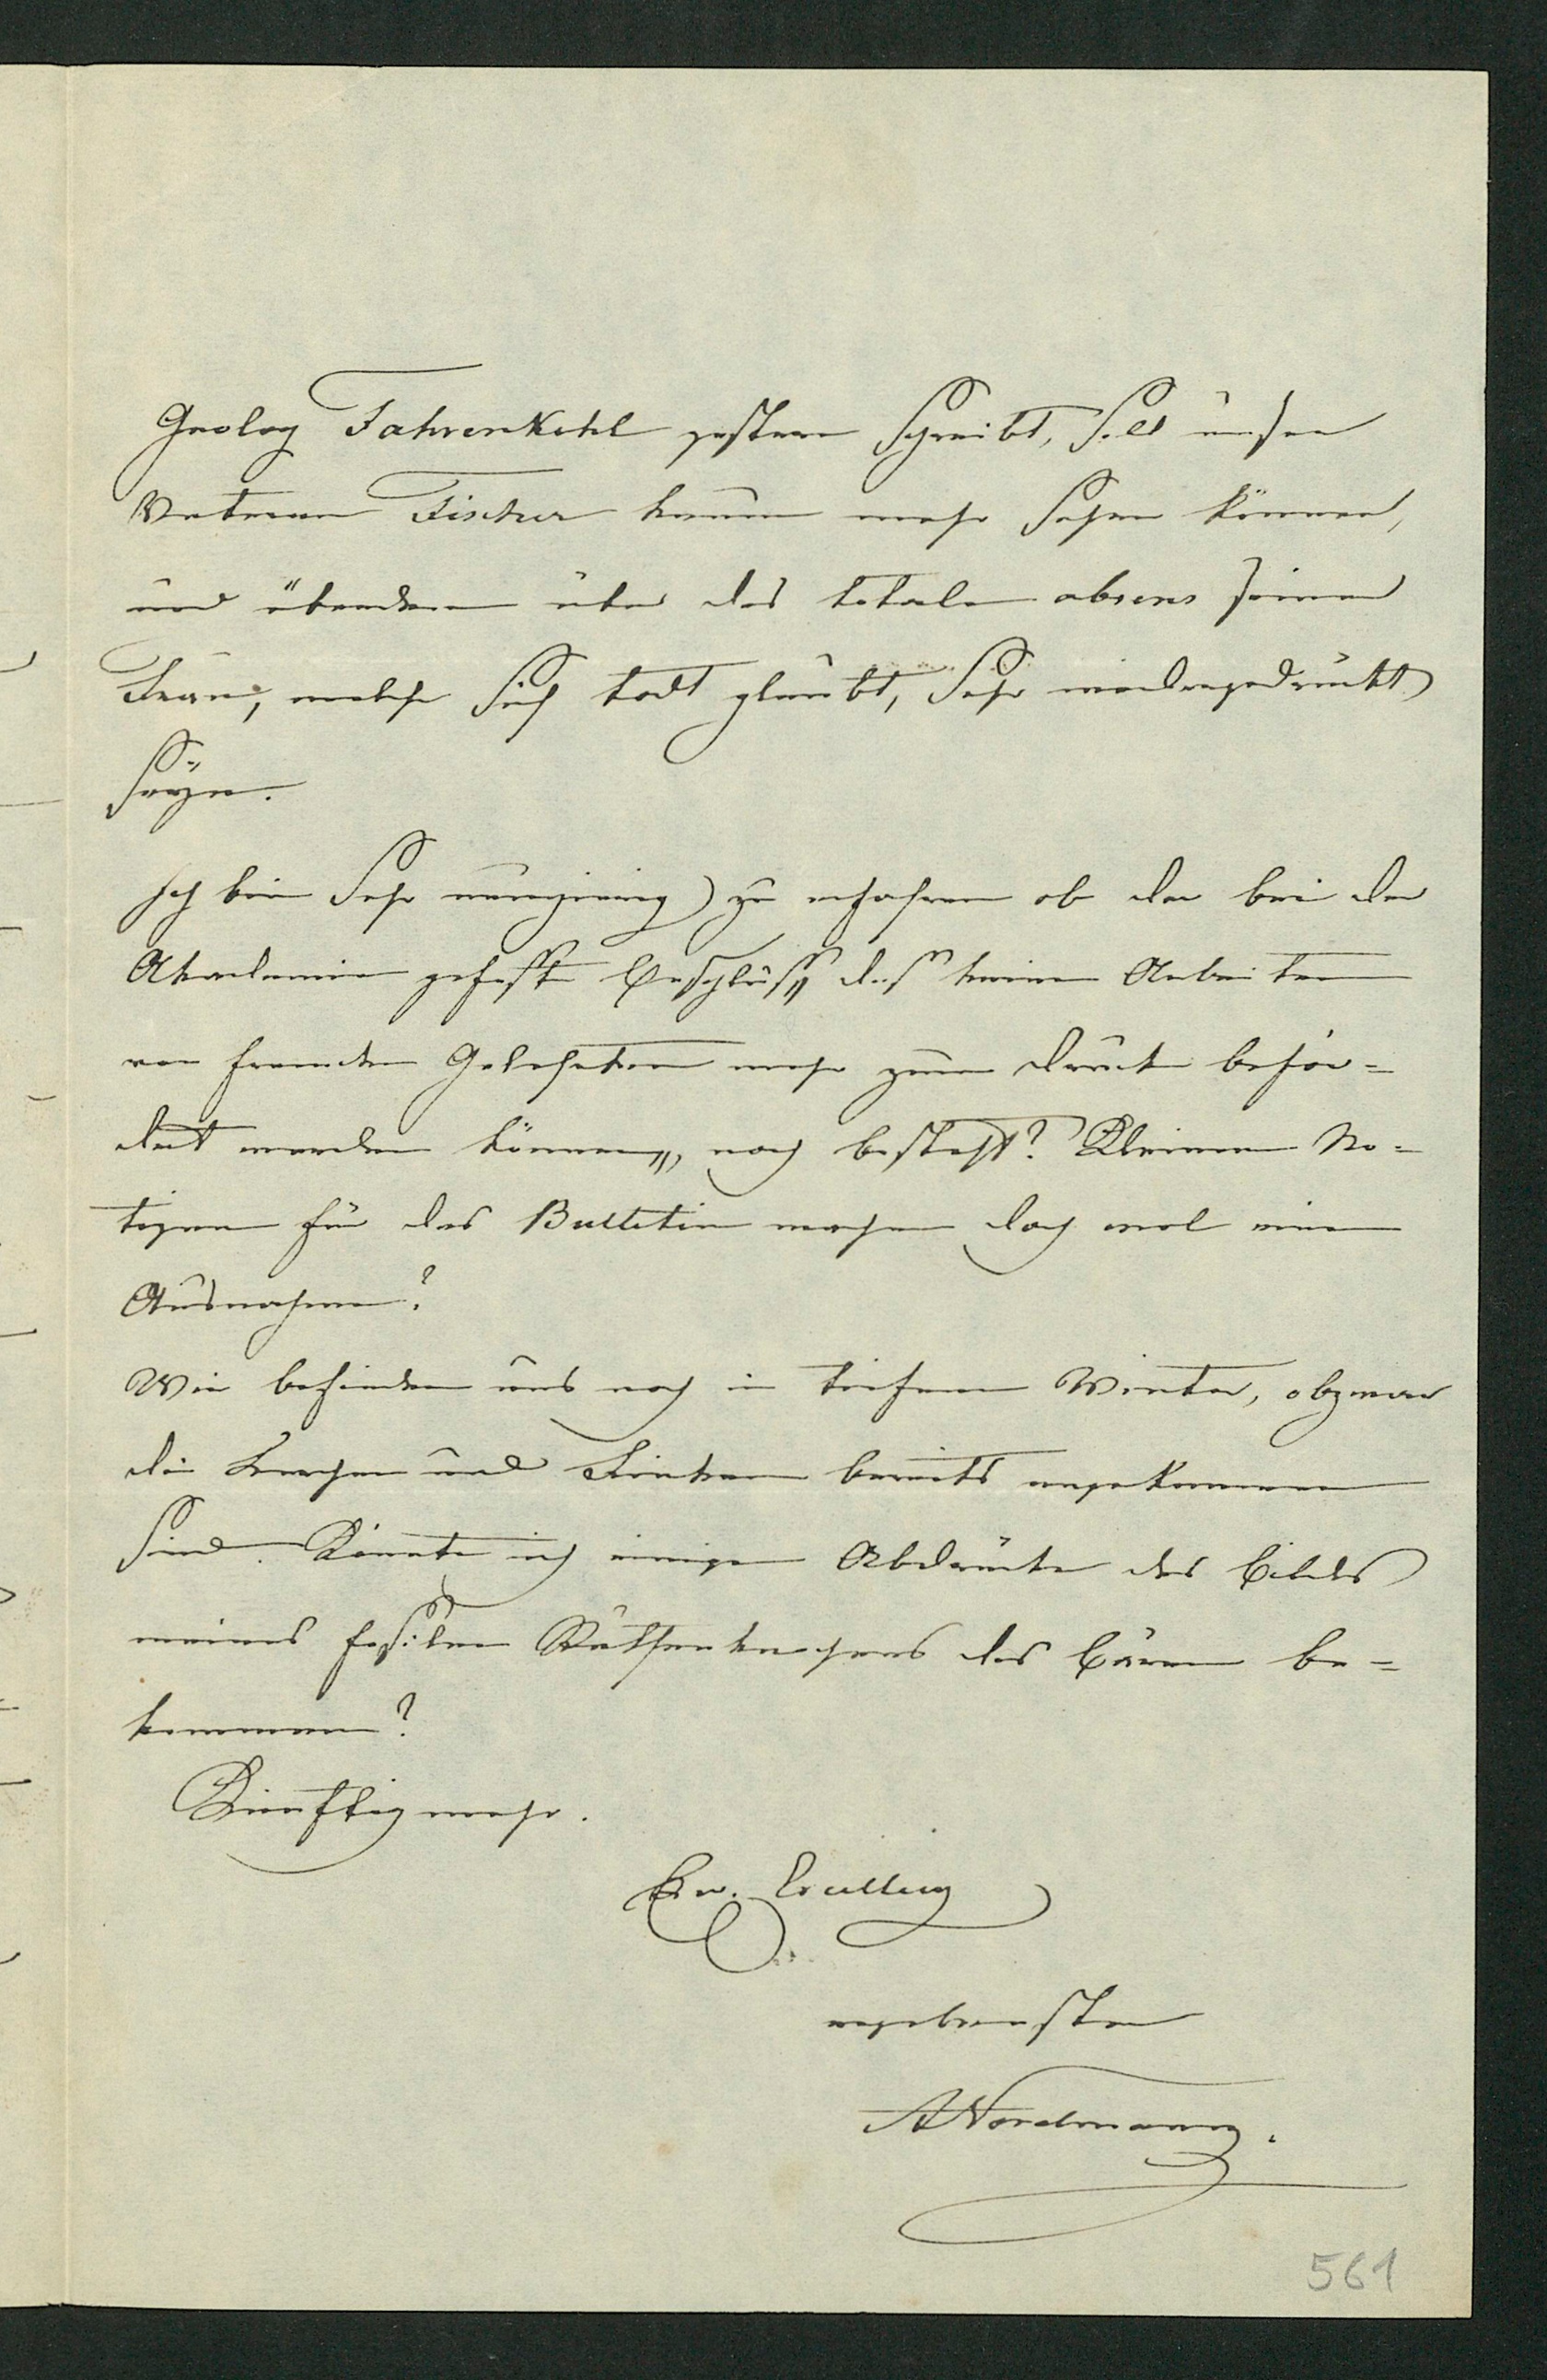 Geolog Fahrenkohl gestern schreibt, soll unser
Veteran Fischer kaum mehr sehen können,
und überdem über das totale absens seiner
Frau, welche sich todt glaubt, sehr niedergedrückt
seyn.
Ich bin sehr neugierig zu erfahren ob der bei der
Akademie gefaßte Beschluß „daß keine Arbeiten
von fremden Gelehrten mehr zum Druck beför=
dert werden können„, noch besteht? Kleinere No=
tizen für das Bulletin machen doch wol eine
Ausnahme?
Wir befinden uns noch in tiefem Winter, obzwar
die Lerchen und Finken bereits angekommen
sind. Könnte ich einige Abdrücke des Bildes
meines fossilen Ruthenknochens des Bären be=
kommen?
Künftig mehr.
Ew. Excellenz
ergebenster
ANordmann.
561